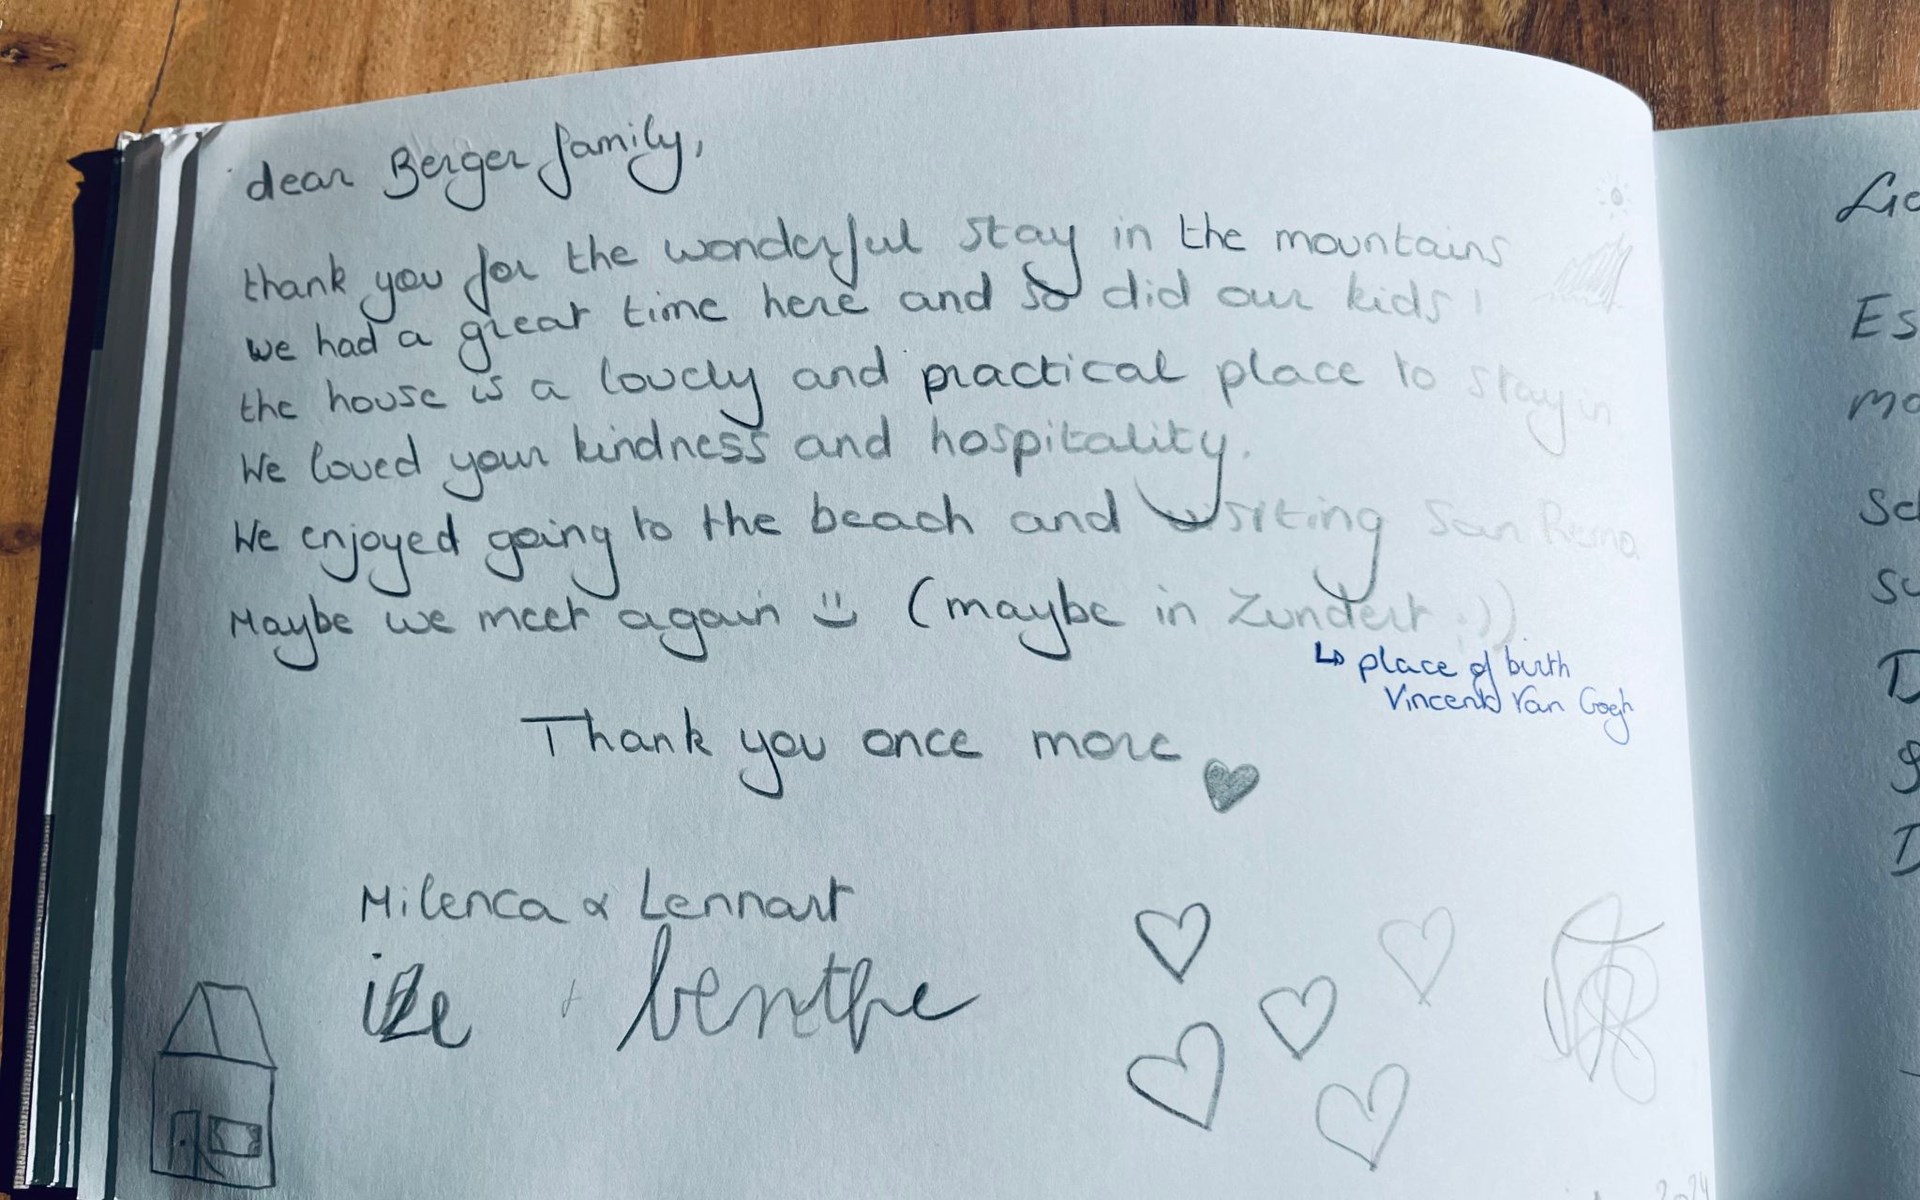 dear Berger family,
thank you for the wonderful stay in the mountains
we had a great time here and so did our kids!
the house is a lovely and practical place to stay in
We loved your kindness and hospitality.
We enjoyed going to the beach and visiting San Remo
Maybe we meet again (maybe in Zundert ;))
↳ place of birth
Vincent Van Gogh
Thank you once more
Milenca & Lennart
benthe
2024
Es